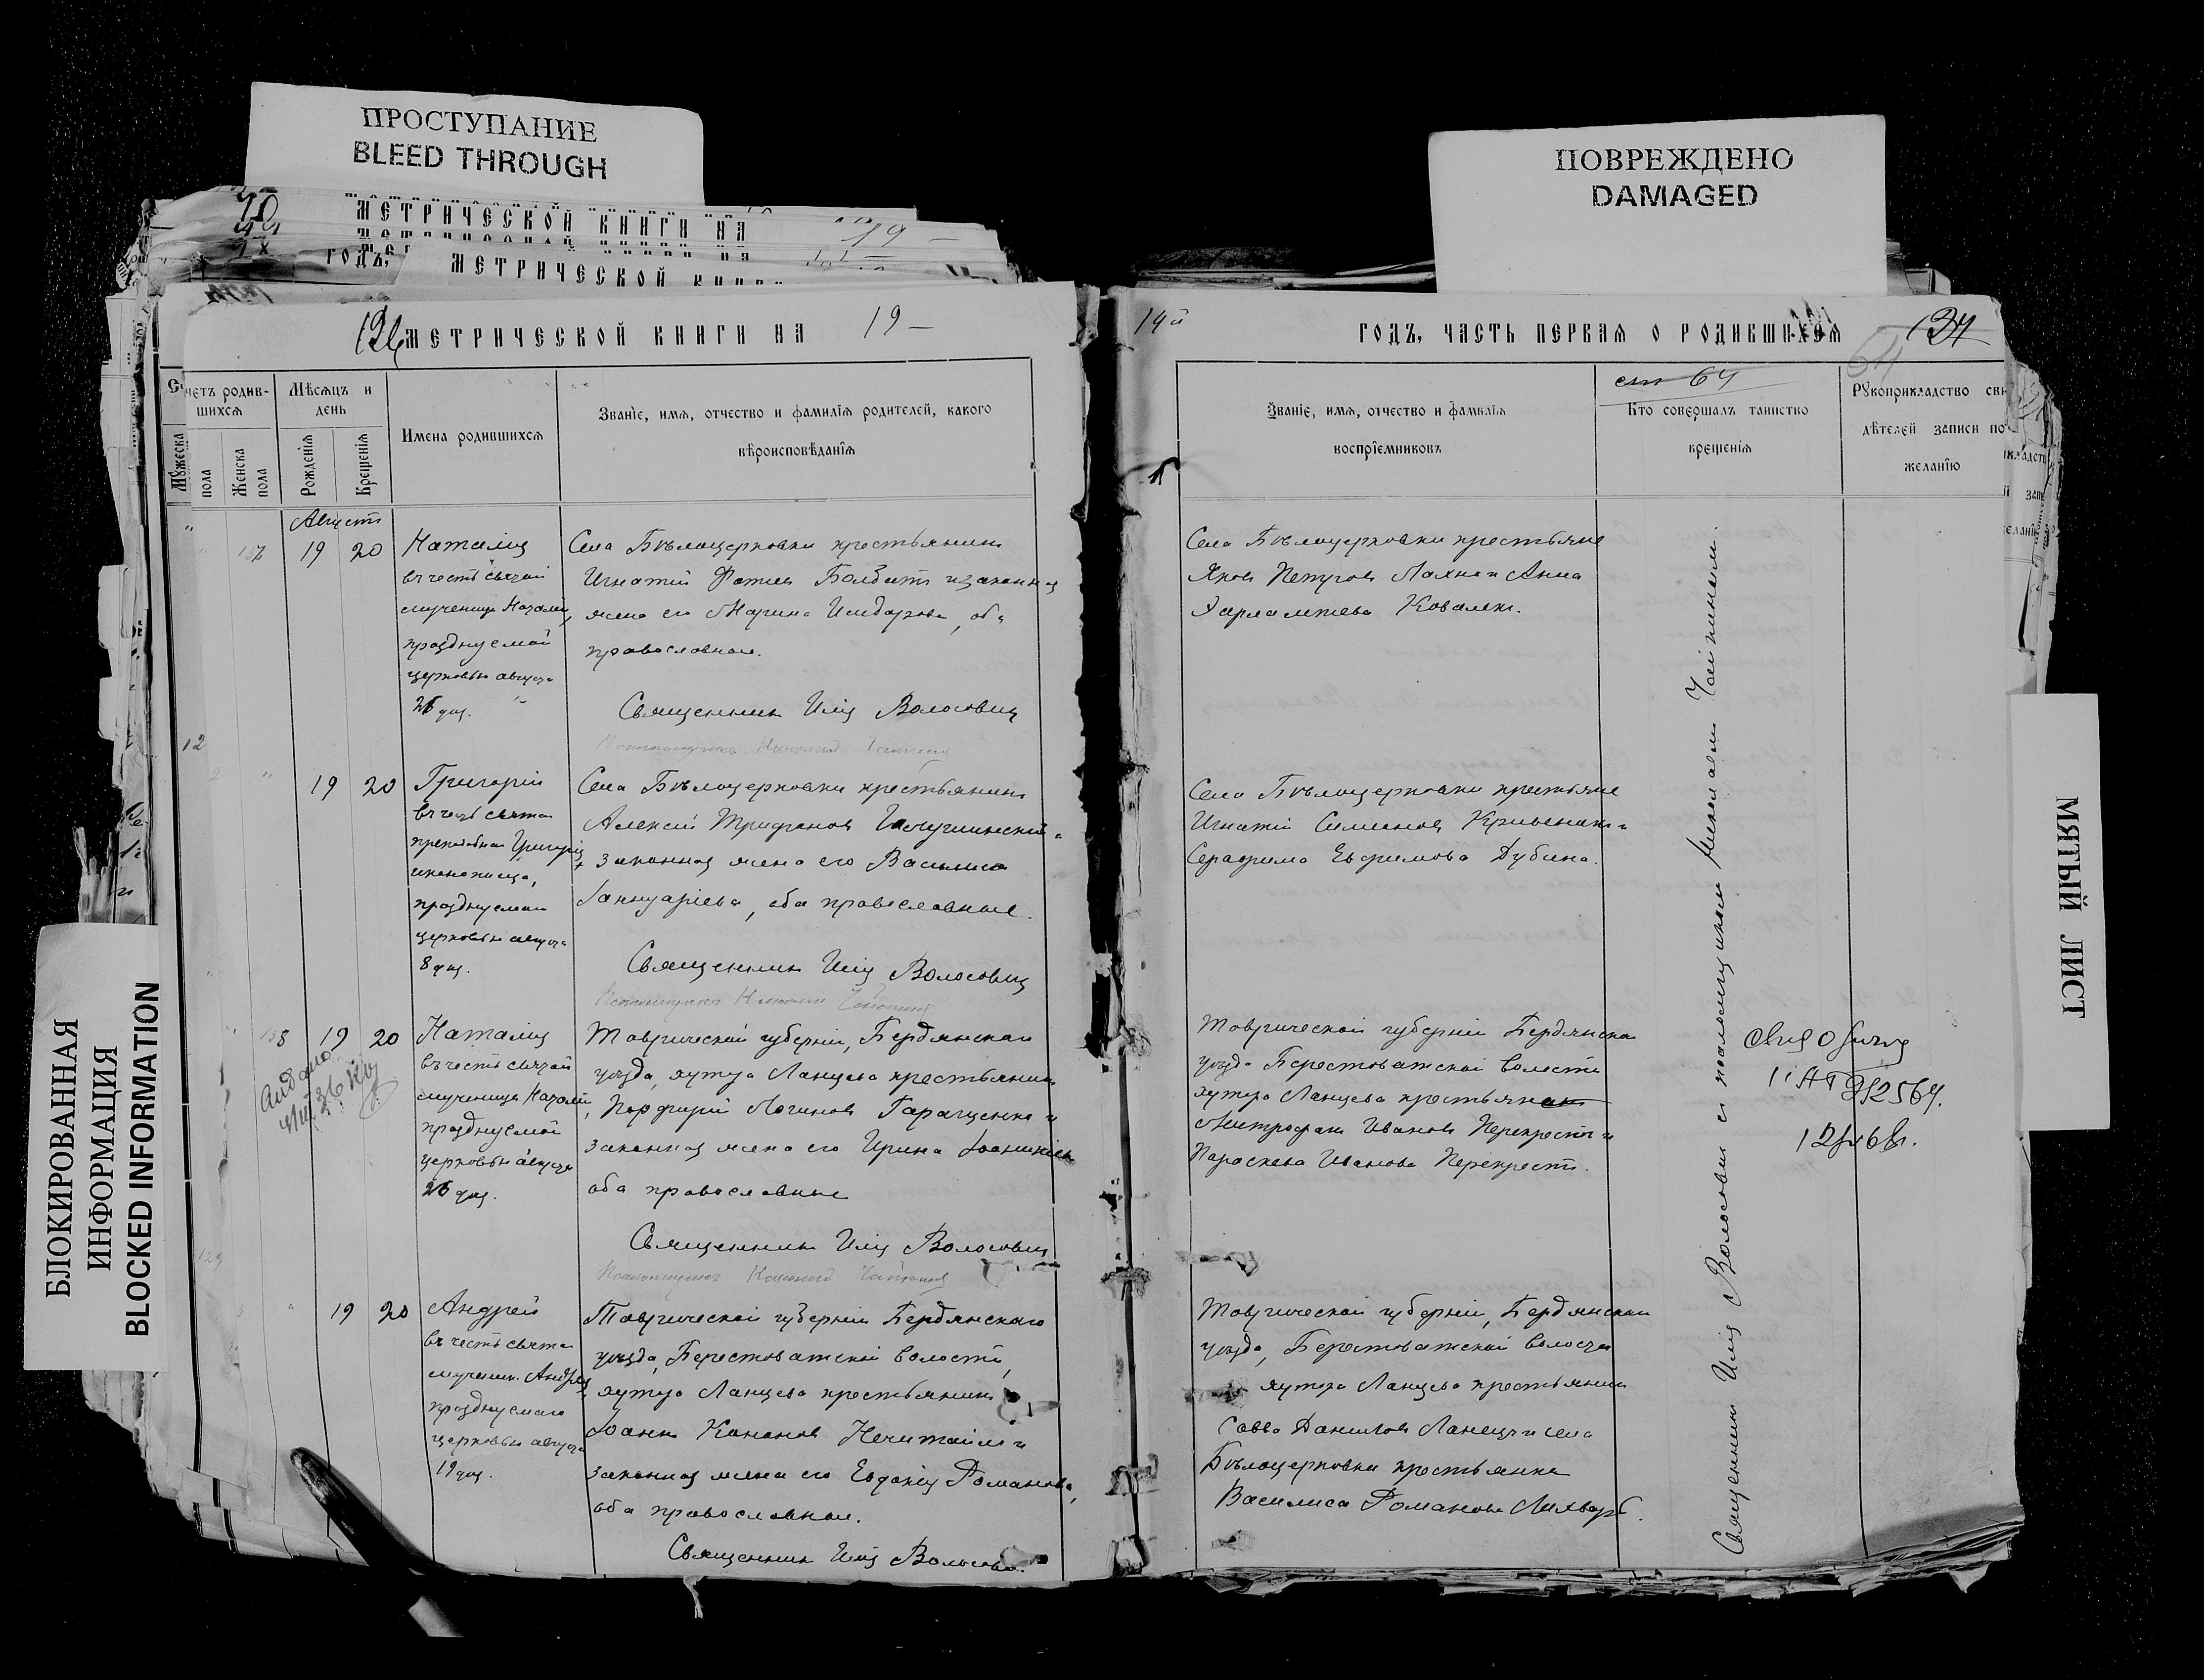 ПРОСТУПАНИЕ
BLEED THROUGH
ПОВРЕЖДЕНО
DAMAGED
МЕТРИЧЕСКОЙ КНИГИ НА 19 —
ГОДЪ,
МЕТРИЧЕСКОЙ
МЕТРИЧЕСКОЙ КНИГИ НА 19 —
Счетъ родив-
шихся
Мѣсяцъ и
день
Мужеска
пола
Женска
пола
Рожденія
Крещенія
Имена родившихся
Званіе, имя, отчество и фамилія родителей, какого
вѣроисповѣданія
Августъ
157 19 20 Наталія
въ честь святой
мученицы Наталіи,
празднуемой
церковью августа
26 дня.
Села Бѣлоцерковки крестьянинъ
Игнатій Фотіев и законная
жена его Марина Исидорова, оба
православные.
Священникъ Илія Волосовичъ
19 20 Григорій
въ честь
преподобнаго Григорія
иконописца,
празднуемаго
церковью августа
8 дня.
Села Бѣлоцерковки крестьянинъ
Алексій Трифоновъ и
законная жена его Василиса
Іаннуаріева, оба православные.
Священникъ Илія Волосовичъ
158 19 20 Наталія
въ честь святой
мученицы Наталіи,
празднуемой
церковью августа
26 дня.
Таврической губерніи, Бердянскаго
уѣзда, хутора Ланцева крестьянинъ
Порфирій Логиновъ Гаращенко и
законная жена его Ирина
оба православные
Священникъ Илія Волосовичъ
19 20 Андрей
въ честь святаго
мученика Андрея,
празднуемаго
церковью августа
19 дня.
Таврической губерніи Бердянскаго
уѣзда, Берестоватской волости,
хутора Ланцева крестьянинъ
Іоаннъ Канановъ Нечитайло и
законная жена его Евдокія Романова,
оба православные.
Священникъ Илія
14й ГОДЪ, ЧАСТЬ ПЕРВАЯ О РОДИВШИХСЯ 134
64
Званіе, имя, отчество и фамилія
воспріемниковъ
Кто совершалъ таинство
крещенія
Рукоприкладство сви-
дѣтелей записи по
желанію
Села Бѣлоцерковки крестьяне
Яковъ Петровъ Лахно и Анна
Харлампіева Коваленко.
Села Бѣлоцерковки крестьяне
Игнатій Симеоновъ и
Серафима Евфимова Дубина.
Таврической губерніи Бердянскаго
уѣзда Берестоватской волости
хутора Ланцева крестьяне
Митрофанъ Ивановъ Перехрестъ и
Параскева Иванова Перехрестъ.
Таврической губерніи, Бердянскаго
уѣзда, Берестоватской волости
хутора Ланцева крестьянинъ
Савва Даниловъ Ланецъ и села
Бѣлоцерковки крестьянка
Василиса Романова Лихваръ.
Священникъ Илія Волосовичъ съ псаломщикомъ Николаемъ Чайкинымъ.
БЛОКИРОВАННАЯ
ИНФОРМАЦИЯ
BLOCKED INFORMATION
МЯТЫЙ ЛИСТ